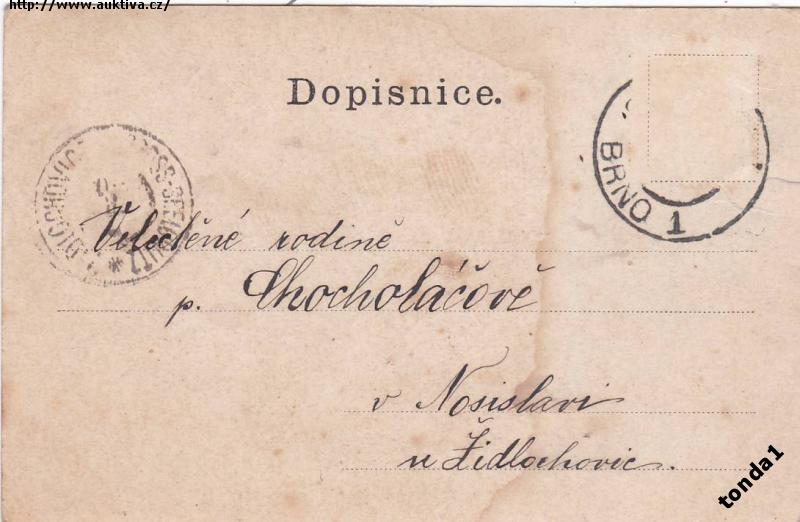 http://www.auktiva.cz/
Dopisnice.
BRNO 1
Velectěné rodině
p. Chocholáčově
v Nosislavi
u Židlochovic.
tonda1